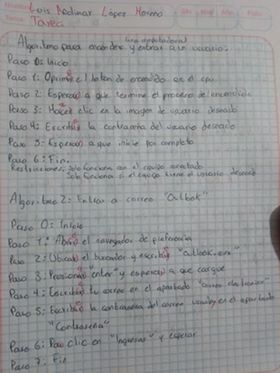 Luis Edimar López Moreno
Tarea
una computadora
Algoritmo para encender y entrar a un usuario.
Paso 0: Inicio
Paso 1: Oprimir el boton de encendido en el cpu
Paso 2: Esperar a que termine el proceso de encendido
Paso 3: Hacer clic en la imagen de usuario deseado
Paso 4: Escribir la contraseña del usuario deseado
Paso 5: Esperar a que inicie por completo
Paso 6: Fin.
Restricciones: Solo funciona con el equipo conectado
Solo funciona si el equipo tiene el usuario deseado
Algoritmo 2: Entrar a correo "Outlook"
Paso 0: Inicio
Paso 1: Abrir el navegador de preferencia
Paso 2: Ubicar el buscador y escribir "Outlook.com"
Paso 3: Presionar "enter" y esperar a que cargue
Paso 4: Escribir tu correo en el apartado "Correo electronico"
Paso 5: Escribir la contraseña del correo en el apartado
"Contraseña"
Paso 6: Dar clic en "Ingresar" y esperar
Paso 7: Fin